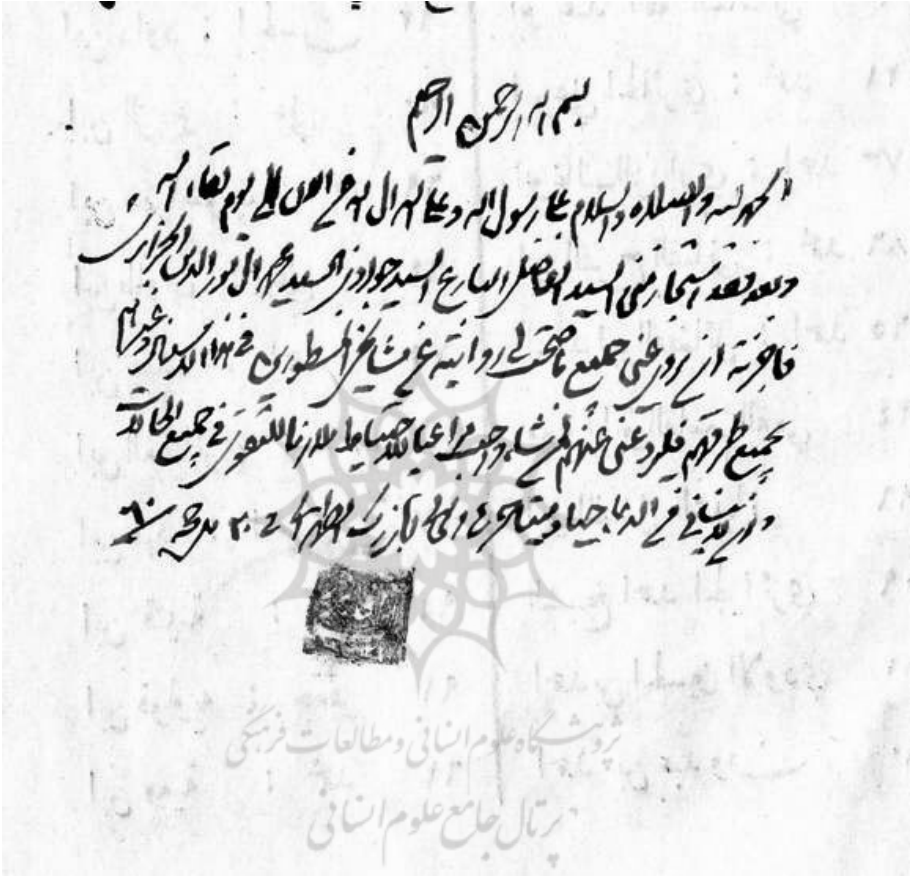 بسم الله الرحمن الرحيم
الحمد لله والصلاة والسلام على رسول الله وعلى آله آل الله من الآن إلى يوم لقاء الله
وبعد فقد استجاز مني السيد الفاضل البارع السيد جواد بن السيد محمد آل نور الدين الجزائري
فاجزته ان يروي عني جميع ما صحت لي روايته عن مشايخي المسطورين في هذا وغيرهم
بجميع طرقهم فليرو عني عنهم لمن شاء واحب مراعيا للاحتياط ملازما للتقوى في جميع الحالات
وان لا ينساني من الدعاء حيا وميتا آقا بزرگ الطهراني في
پژوهشگاه علوم انسانی و مطالعات فرهنگی
پرتال جامع علوم انسانی